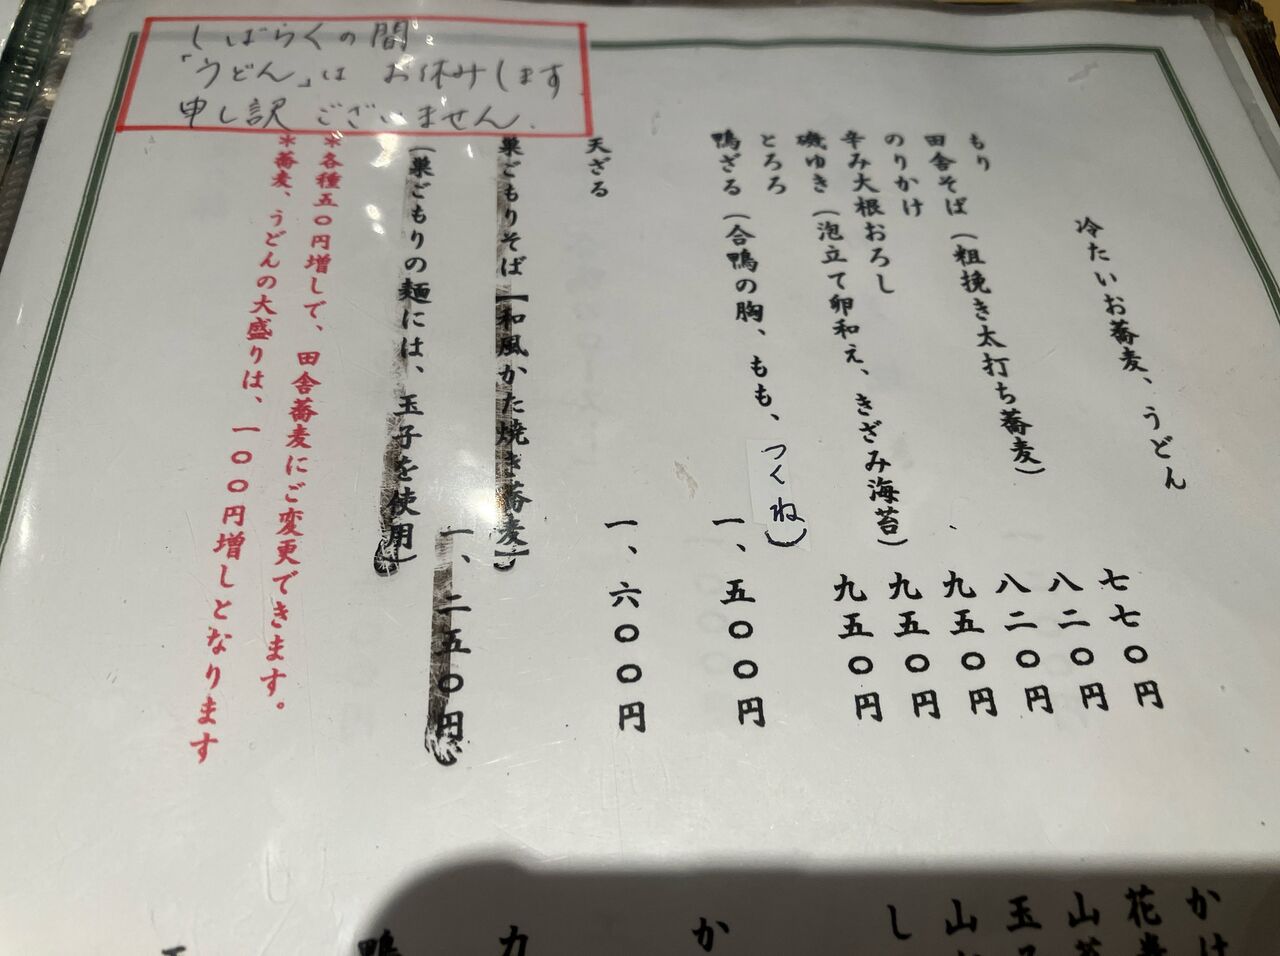 しばらくの間
「うどん」は お休みします
申し訳 ございません.
冷たいお蕎麦、うどん
もり 七七〇円
田舎そば（粗挽き太打ち蕎麦） 八二〇円
のりかけ 八二〇円
辛み大根おろし 九五〇円
磯ゆき（泡立て卵和え、きざみ海苔） 九五〇円
とろろ 九五〇円
鴨ざる（合鴨の胸、もも、つくね） 一、五〇〇円
天ざる 一、六〇〇円
巣ごもりそば【和風かた焼き蕎麦】 一、二五〇円
（巣ごもりの麺には、玉子を使用）
＊各種五〇円増しで、田舎蕎麦にご変更できます。
＊蕎麦、うどんの大盛りは、一〇〇円増しとなります
かけ
花巻
山
玉
山
し
か
九
鴨
天